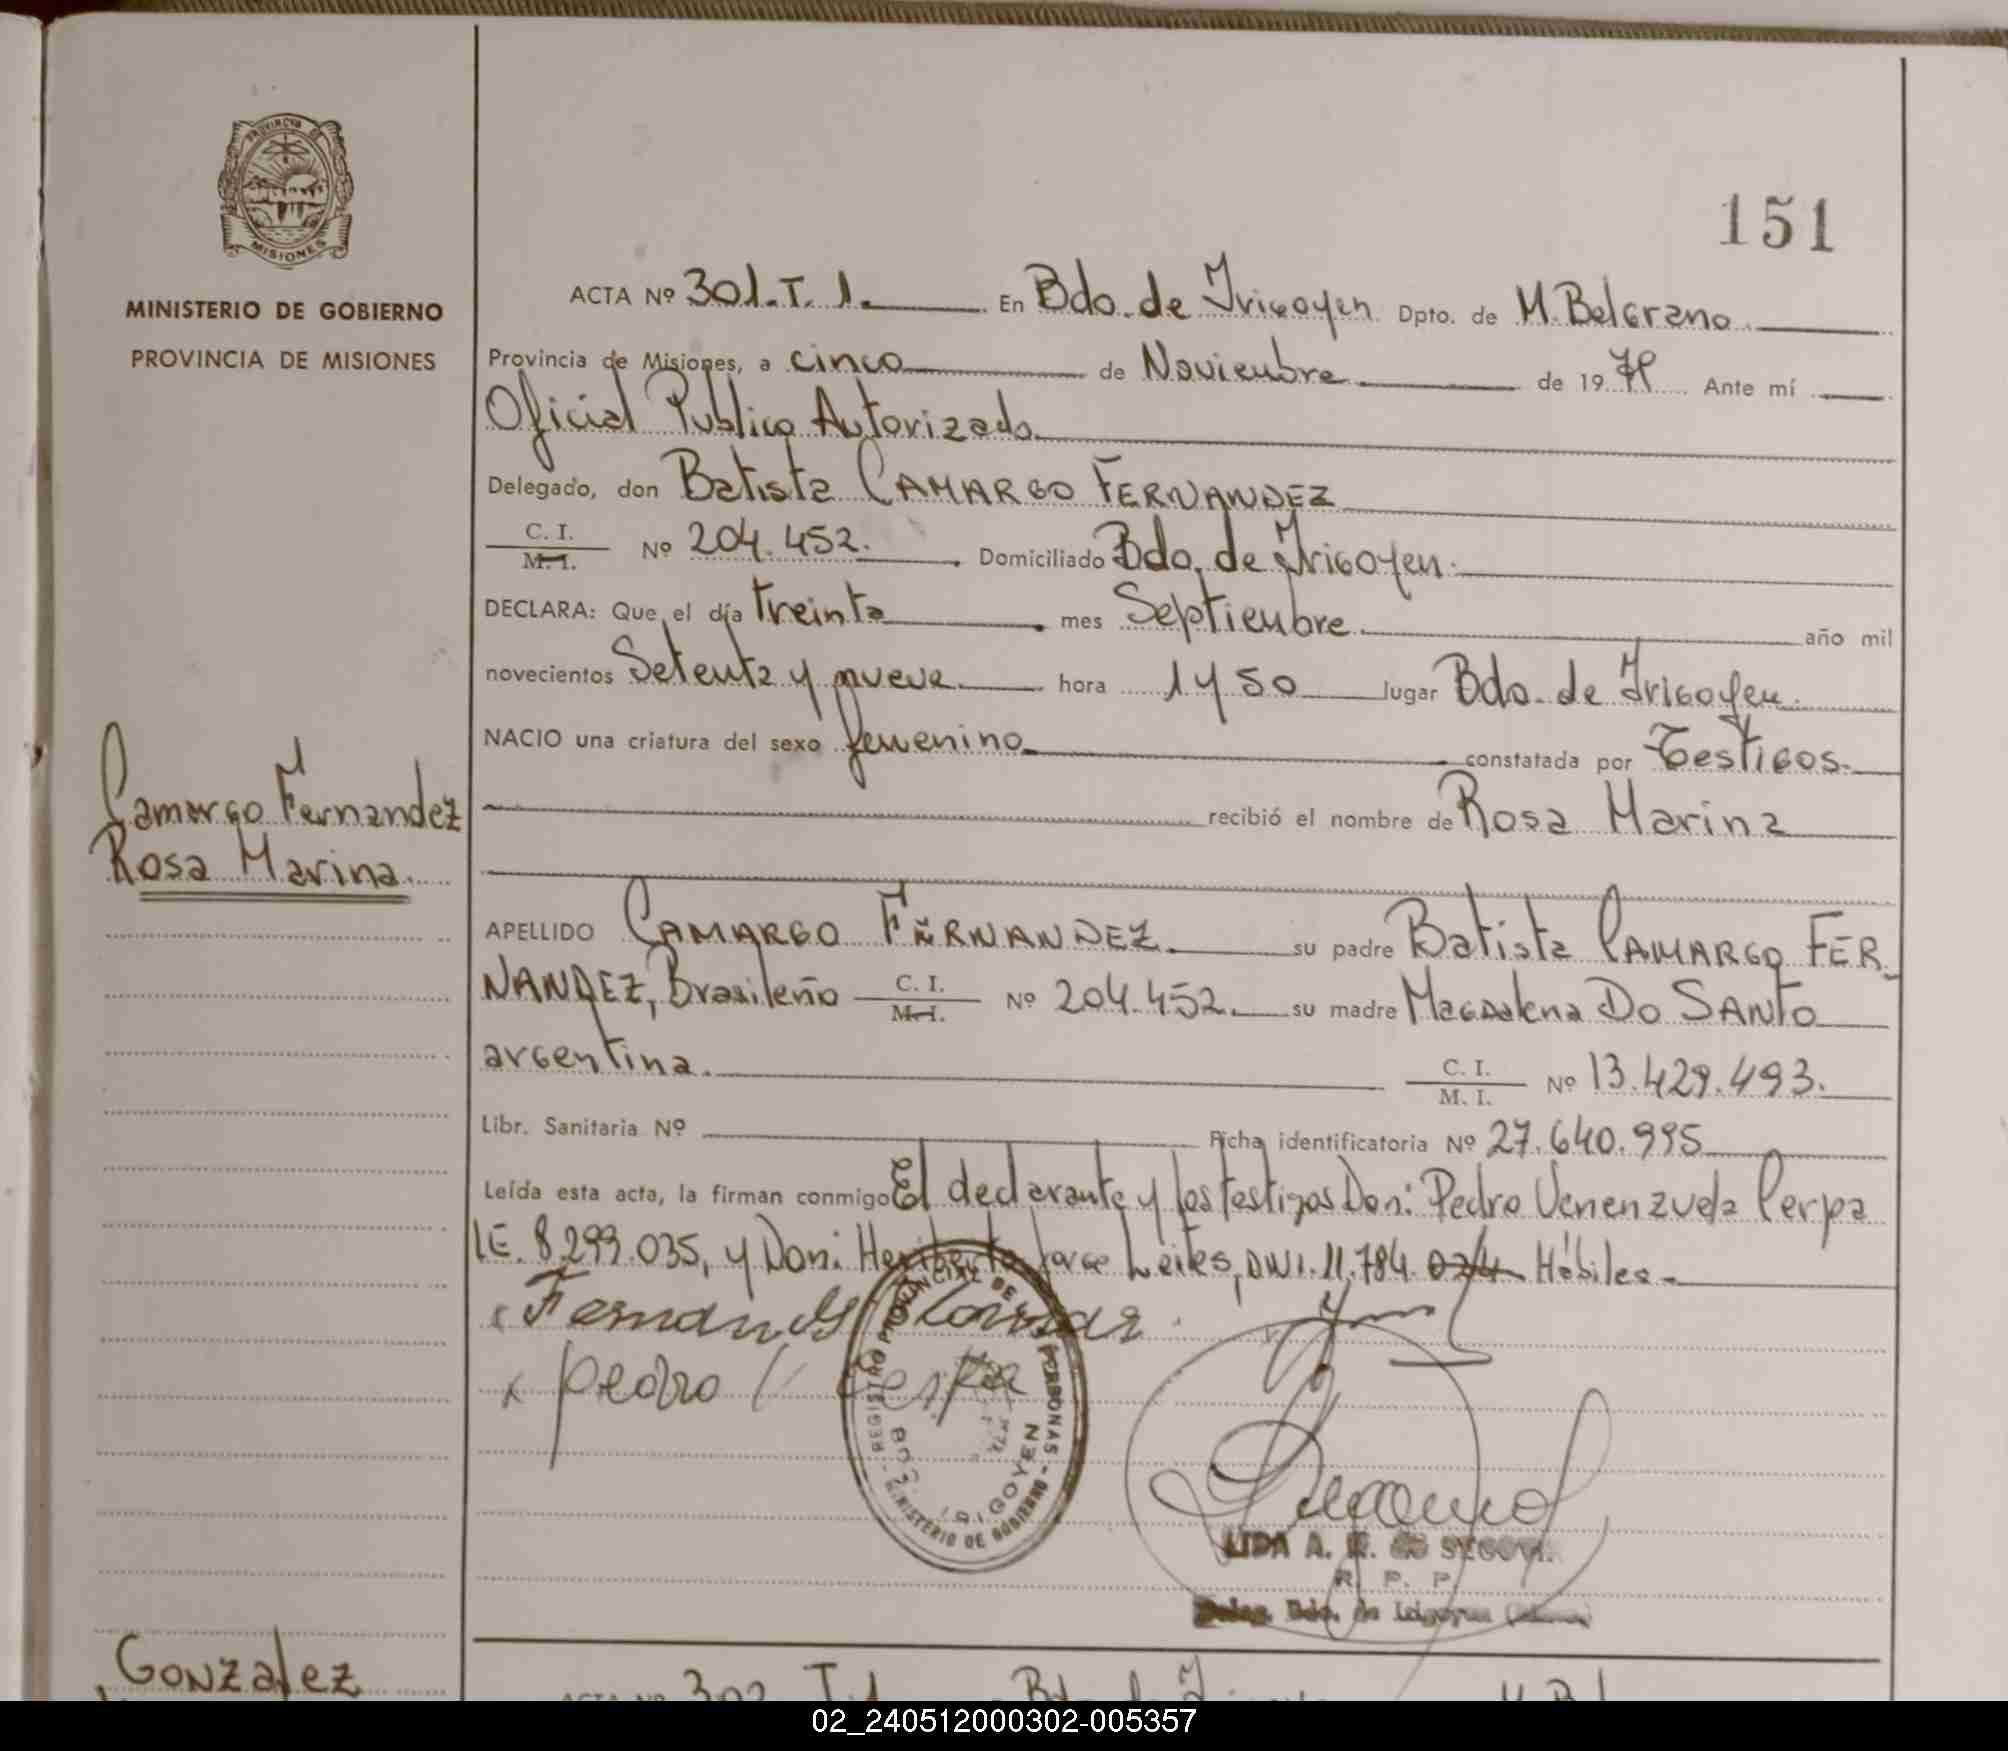 PROVINCIA DE
MISIONES
MINISTERIO DE GOBIERNO
PROVINCIA DE MISIONES
151
ACTA Nº 301.T. 1. En Bdo. de Irigoyen Dpto. de M. Belgrano
Provincia de Misiones, a cinco de Noviembre de 19 79 Ante mí
Oficial Publico Autorizado
Delegado, don Batista CAMARGO FERNANDEZ
C. I. M. I. Nº 204.452. Domiciliado Bdo. de Irigoyen.
DECLARA: Que el día treinta mes Septiembre año mil
novecientos Setenta y nueve hora 1 y 50 lugar Bdo. de Irigoyen.
NACIO una criatura del sexo femenino constatada por Testigos.
Camargo Fernandez
recibió el nombre de Rosa Marina
Rosa Marina.
APELLIDO CAMARGO FERNANDEZ su padre Batista CAMARGO FER-
NANDEZ, Brasileño C. I. M. I. Nº 204.452. su madre Magdalena DO SANTO
argentina. C. I. M. I. Nº 13.429.493.
Libr. Sanitaria Nº Ficha identificatoria Nº 27.640.995
Leída esta acta, la firman conmigo El declarante y los testigos Don: Pedro Venenzuela Cerpa
LE. 8.299.035, y Don: Heriberto Jorge Leites, DNI. 11.784. 024 Hábiles.-
Pedro
REGISTRO PROVINCIAL DE LAS PERSONAS
BDO. IRIGOYEN
MINISTERIO DE GOBIERNO
LIDA A. SEGOVIA
R. P. P.
Deleg. Bdo. de Irigoyen
Gonzalez
ACTA Nº 302 T.1
02_240512000302-005357